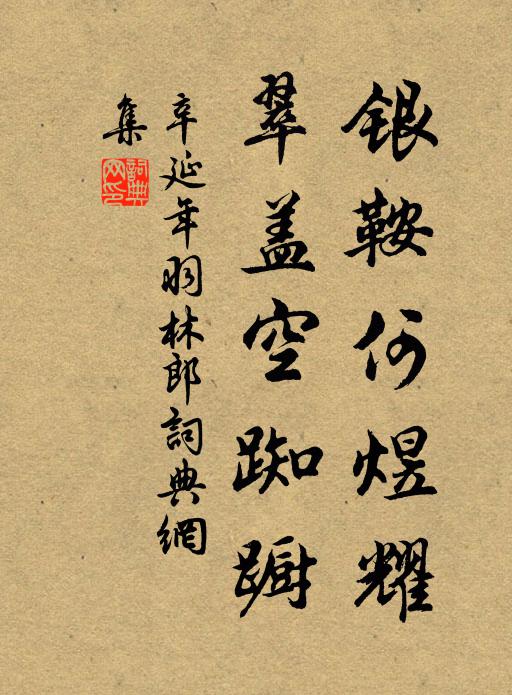 银鞍何煜耀
翠盖空踟蹰
辛延年羽林郎詞典網
集
詞典网印